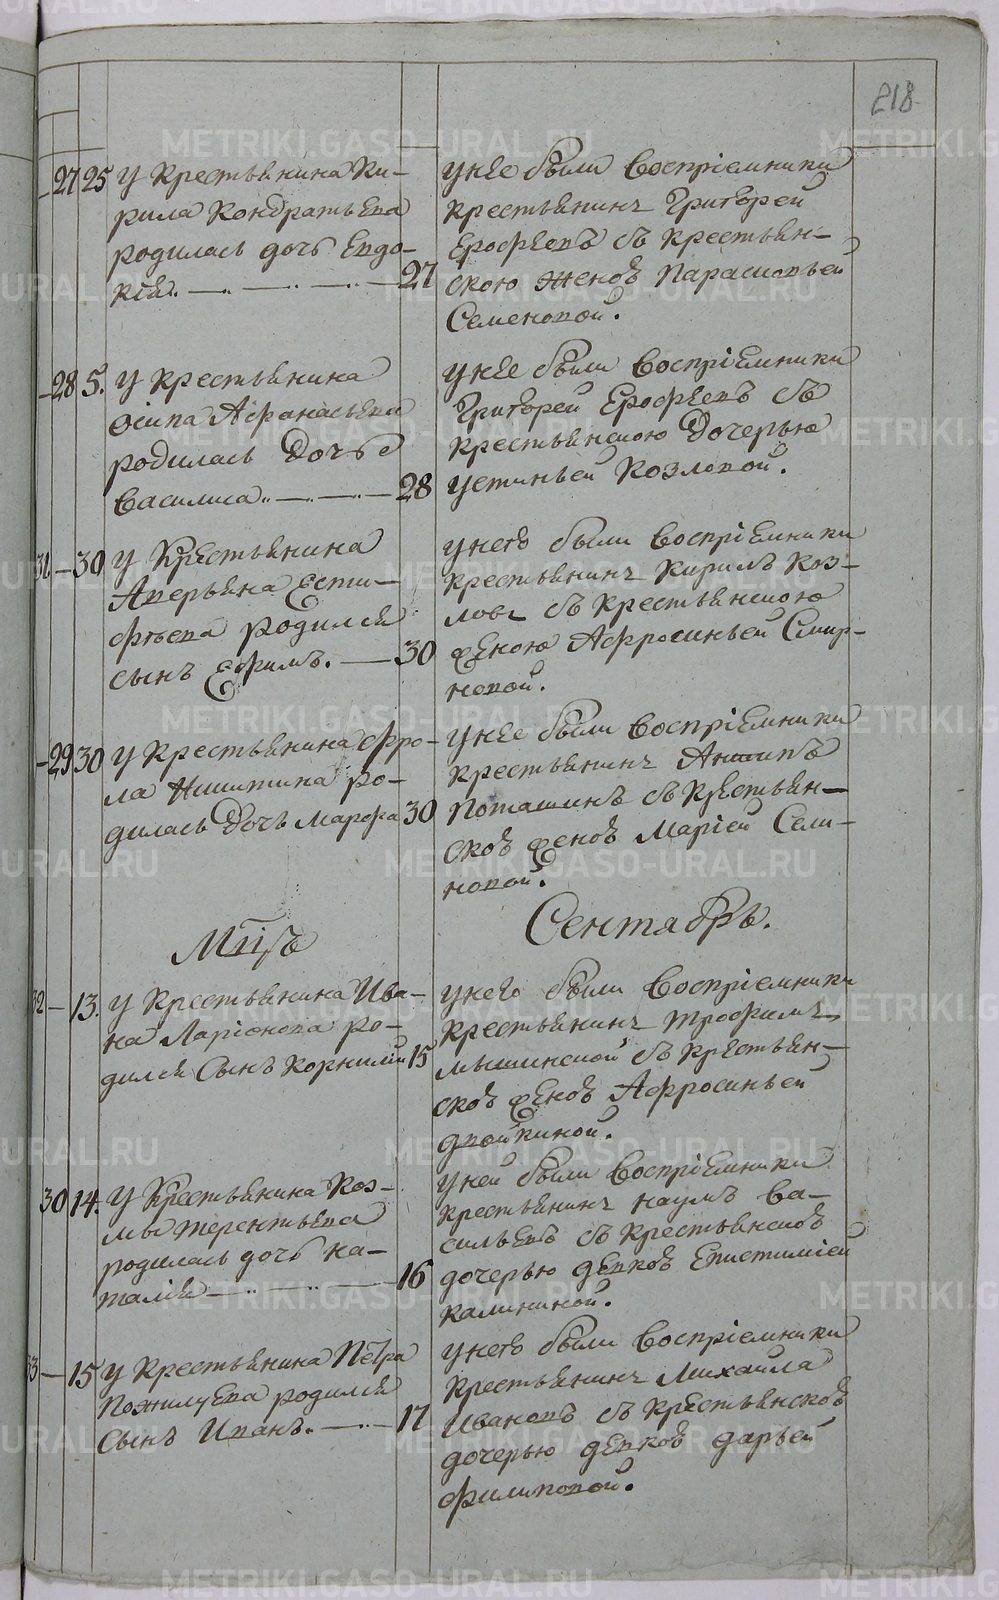 218
27 25 У Крестьянина Ки-
рила Кондратьева
родилась дочь Евдо-
кія. 27
У нее были Воспріемники
крестьянинъ Григорей
Ерофеевъ съ крестьян-
скою женоъ Парасковьей
Семеновой.
28 5. У крестьянина
Осипа Афанасьева
родилась Дочь
Василиса 28
У нее были Воспріемники
Григорей Ерофеевъ съ
крестьянскою Дочерью
Устиньей Козловой.
31 30 У Крестьянина
Аверьяна Ести-
фѣева родился
сынъ Ефимъ. 30
У него были Воспріемники
крестьянинъ Кирилъ Коз-
ловъ съ крестьянскою
женою Афросиньей Смир-
новой.
29 30 У крестьянина Фро-
ла Никитина ро-
дилась Дочь Марфа 30
У нее были Воспріемники
крестьянинъ Антипъ
Поташинъ съ крестьян-
скоъ женоъ Маріей Сели-
новой.
Мцъ Сентябрь.
32 13. У крестьянина Ива-
на Ларіонова ро-
дился Сынъ Корнилий 15
У него были Воспріемники
крестьянинъ Трофимъ
Мышинской съ крестьян-
скоъ женоъ Афросиньей
Двойкиной.
30 14. У Крестьянина Коз-
мы Терентьева
родилась дочь На-
талія 16
У ней были Воспріемники
крестьянинъ Наумъ Ва-
сильевъ съ крестьянскоъ
дочерью девкоъ Епистиміей
Калининой.
33 15 У крестьянина Петра
Пожилуева родился
Сынъ Иванъ. 17
У него были Воспріемники
крестьянинъ Михайла
Ивановъ съ крестьянскоъ
дочерью девкоъ Дарьей
Филиповой.